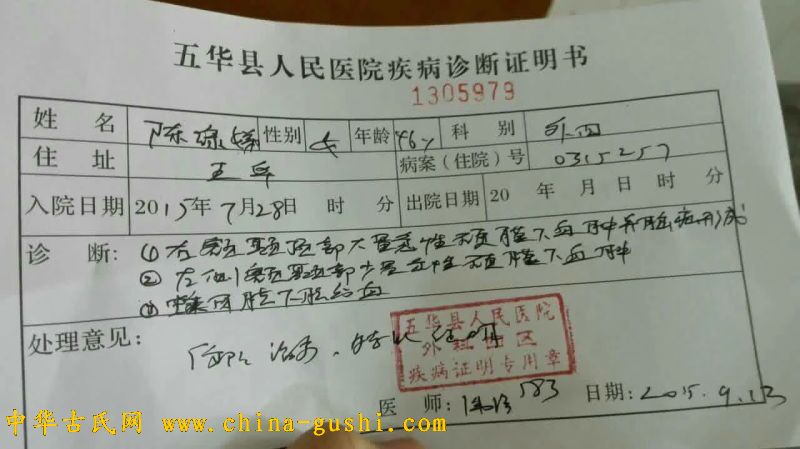 五华县人民医院疾病诊断证明书
1305979
姓 名 陈 性别 女 年龄 46y 科 别 外四
住 址 五华 病案（住院）号 0315257
入院日期 2015年7月28日 时 分 出院日期 20 年 月 日 时 分
诊 断： ① 右额颞顶部大量急性硬膜下血肿并脑疝形成
② 左侧额颞顶部少量急性硬膜下血肿
③ 蛛网膜下腔出血
处理意见：
住院治疗、特此证明
五华县人民医院
外科病区
疾病证明专用章
医 师： 583 日期： 2015.9.23
中华古氏网 www.china-gushi.com